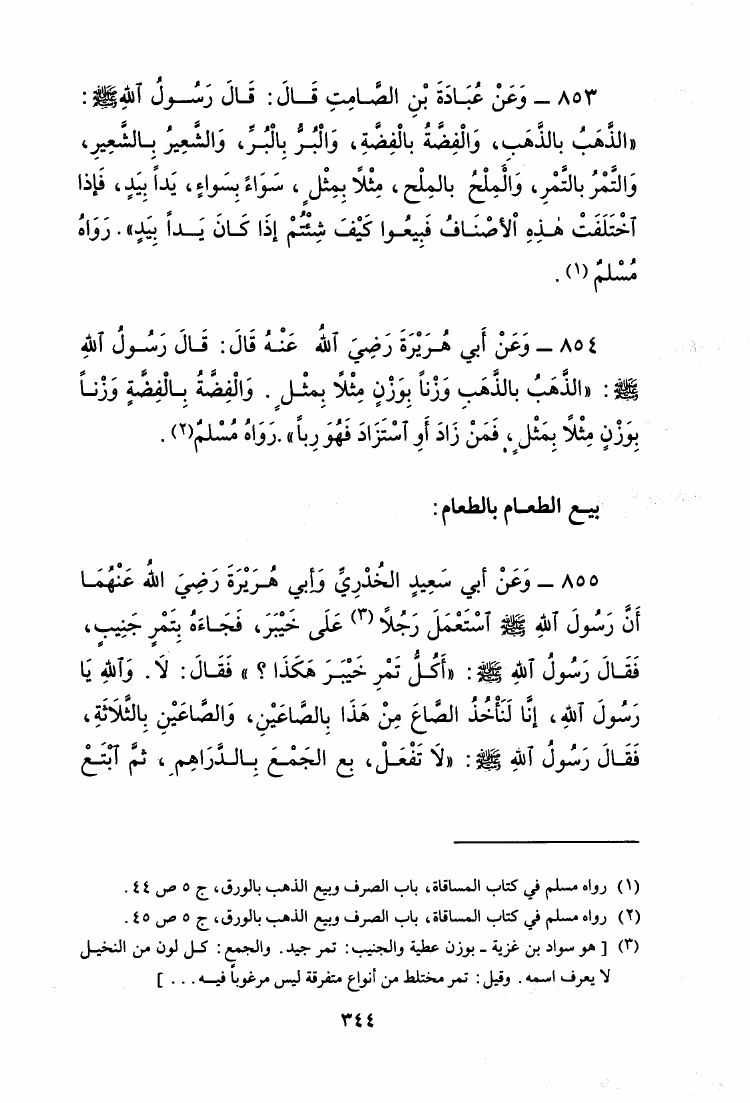 ٨٥٣ ـ وَعَنْ عُبَـادَةَ بْنِ الصَّـامِتِ قَـالَ: قَـالَ رَسُـولُ ٱللهِ ﷺ:
«الذَّهَبُ بالذَّهَبِ، وَالْفِضَّةُ بالْفِضَّةِ، وَالْبُـرُّ بِالْبُـرِّ، وَالشَّعِيرُ بِـالشَّعِيرِ،
وَالتَّمْرُ بالتَّمْرِ، وَالْمِلْحُ بالمِلْحِ، مِثْلًا بِمِثْلٍ، سَوَاءً بِسَواءٍ، يَداً بِيَدٍ، فَإذا
ٱخْتَلَفَتْ هٰـذِهِ الْأَصْنَـافُ فَبِيعُـوا كَيْفَ شِئْتُمْ إذَا كَـانَ يَـداً بِيَدٍ». رَوَاهُ
مُسْلِمٌ (١).
٨٥٤ ـ وَعَنْ أَبي هُـرَيْرَةَ رَضِيَ ٱللهُ عَنْـهُ قَالَ: قَـالَ رَسُـولُ ٱللهِ
ﷺ: «الذَّهَبُ بالذَّهَبِ وَزْناً بِوَزْنٍ مِثْلًا بِمثْـلٍ. وَالْفِضَّةُ بِـالْفِضَّةِ وَزْنـاً
بِوَزْنٍ مِثْلًا بِمَثْلٍ، فَمَنْ زَادَ أَوِ ٱسْتَزَادَ فَهُوَ رِباً». رَوَاهُ مُسْلِمٌ(٢).
بيـع الطعـام بالطعام:
٨٥٥ ـ وَعَنْ أبي سَعِيدٍ الخُدْرِيِّ وَأَبي هُـرَيْرَةَ رَضِيَ اللهُ عَنْهُمَـا
أَنَّ رَسُولَ ٱللهِ ﷺ ٱسْتَعْمَلَ رَجُلًا (٣) عَلَى خَيْبَرَ، فَجَـاءَهُ بِتَمْرٍ جَنِيبٍ،
فَقَـالَ رَسُولُ ٱللهِ ﷺ: «أَكُـلُّ تَمْرِ خَيْبَـرَ هَكَذَا ؟ » فَقَـالَ: لَا. وَٱللهِ يَا
رَسُولَ ٱللهِ، إنَّا لَنَأْخُذُ الصَّاعَ مِنْ هَذَا بِالصَّاعَيْنِ، وَالصَّاعَيْنِ بِالثَّلَاثَةِ،
فَقَالَ رَسُولُ ٱللهِ ﷺ: «لَا تَفْعَـلْ، بِعِ الجَمْـعَ بِـالـدَّرَاهِمِ، ثمَّ ٱبْتَـعْ
(١) رواه مسلم في كتاب المساقاة، باب الصرف وبيع الذهب بالورق، ج ٥ ص ٤٤.
(٢) رواه مسلم في كتاب المساقاة، باب الصرف وبيع الذهب بالورق، ج ٥ ص ٤٥.
(٣) [ هو سواد بن غزية ـ بوزن عطية والجنيب: تمر جيد. والجمع: كـل لون من النخيـل
لا يعرف اسمه. وقيل: تمر مختلط من أنواع متفرقة ليس مرغوباً فيـه... ]
٣٤٤